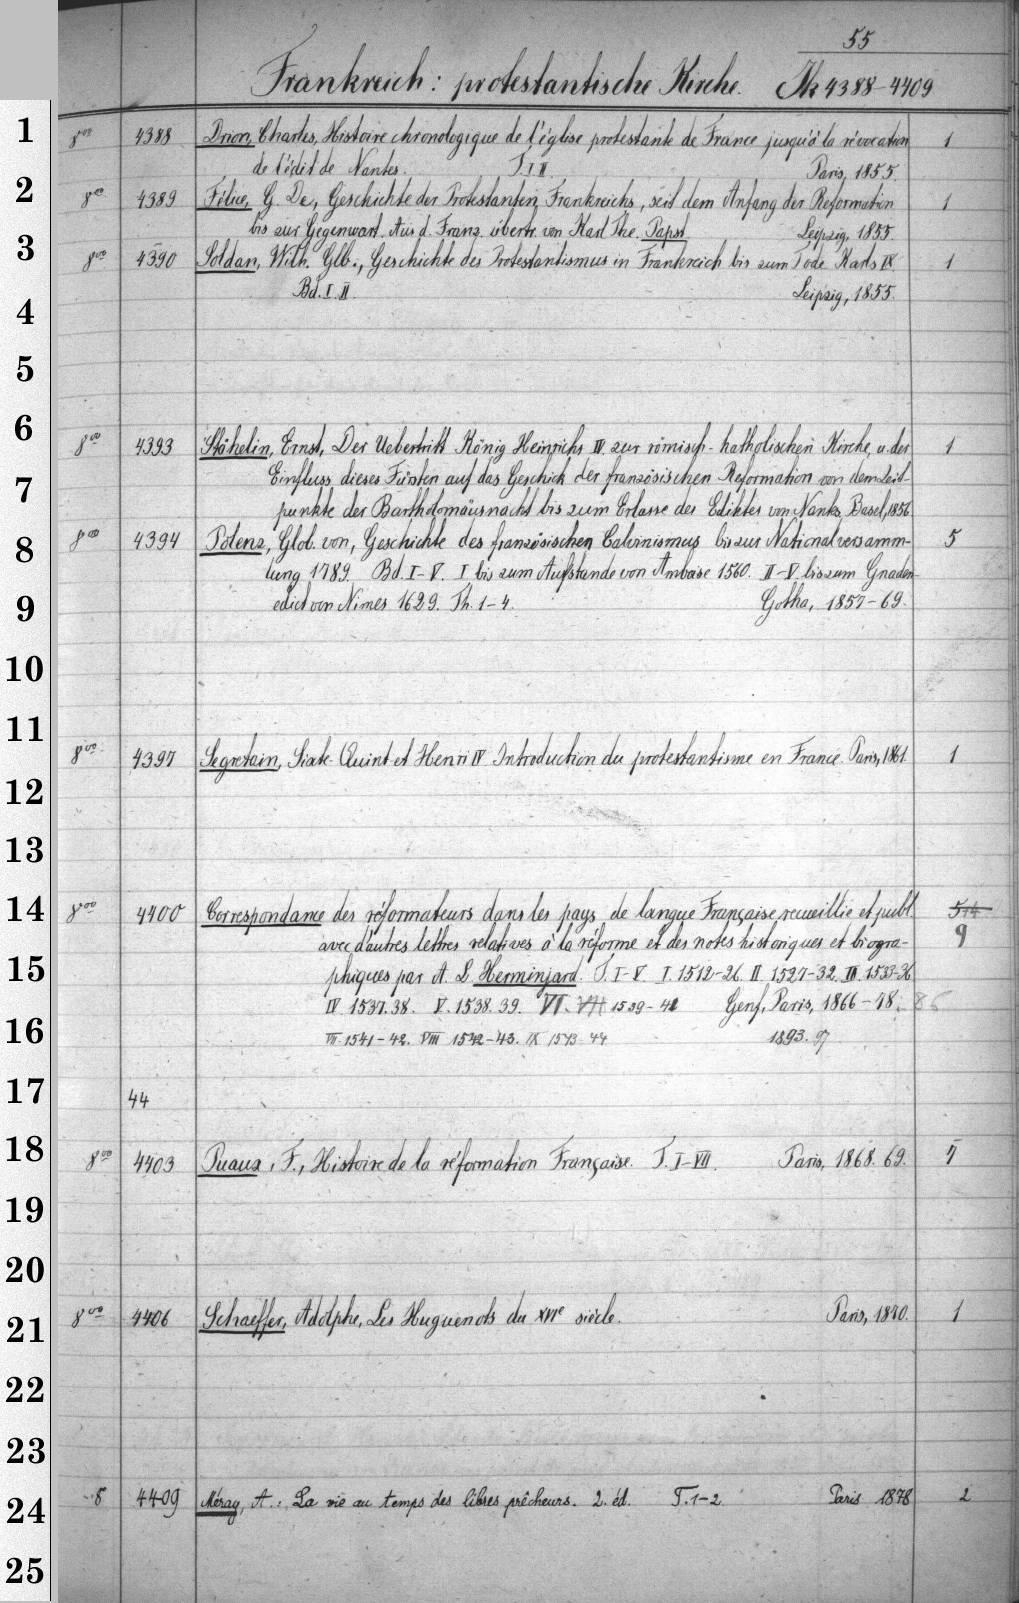 55
Frankreich: protestantische Kirche. Jk 4388-4409
1
8vo 4388 Drion, Charles, Histoire chronologique de l'église protestante de France jusqu'à la révocation 1
de l'édit de Nantes. T. I II Paris, 1855.
2
8vo 4389 Félice, G. De, Geschichte der Protestanten Frankreichs, seit dem Anfang der Reformation 1
bis zur Gegenwart. Aus d. Franz. übertr. von Karl The. Papst Leipzig, 1855.
3
8vo 4390 Soldan, Wilh. Glb., Geschichte des Protestantismus in Frankreich bis zum Tode Karls IX 1
Bd. I. II. Leipzig, 1855.
4
5
6
8vo 4393 Stähelin, Ernst, Der Uebertritt König Heinrichs IV zur römisch-katholischen Kirche, u. der 1
Einfluss dieses Fürsten auf das Geschick der französischen Reformation von dem Zeit-
7
punkte der Bartholomäusnacht bis zum Erlasse des Ediktes von Nantes, Basel, 1856.
8
8vo 4394 Polenz, Glob. von, Geschichte des französischen Calvinismus bis zur Nationalversamm- 5
lung 1789. Bd. I-V. I bis zum Aufstande von Amboise 1560. II-V bis zum Gnaden-
9
edict von Nîmes 1629. Th. 1-4. Gotha, 1857-69.
10
11
8vo 4397 Segretain, Sixte-Quint et Henri IV Introduction du protestantisme en France. Paris, 1861. 1
12
13
14
8vo 4400 Correspondance des réformateurs dans les pays de langue Française, recueillie et publ.
avec d'autres lettres relatives à la réforme et des notes historiques et biogra- 9
15
phiques par A. L. Herminjard. T. I-V I. 1512-26. II 1527-32. III. 1533-36
IV 1537.38. V. 1538.39. VI. VII 1539-41 Genf, Paris, 1866-78. 86
16
VII 1541-42. VIII 1542-43. IX 1543 44 1893. 97
17
44
18
8vo 4403 Puaux, F., Histoire de la réformation Française. T. I-VII. Paris, 1868.69. 7
19
20
21
8vo 4406 Schaeffer, Adolphe, Les Huguenots du XVIe siècle. Paris, 1870. 1
22
23
24
8 4409 Méray, A.: La vie au temps des libres prêcheurs. 2. éd. T. 1-2 Paris 1878 2
25